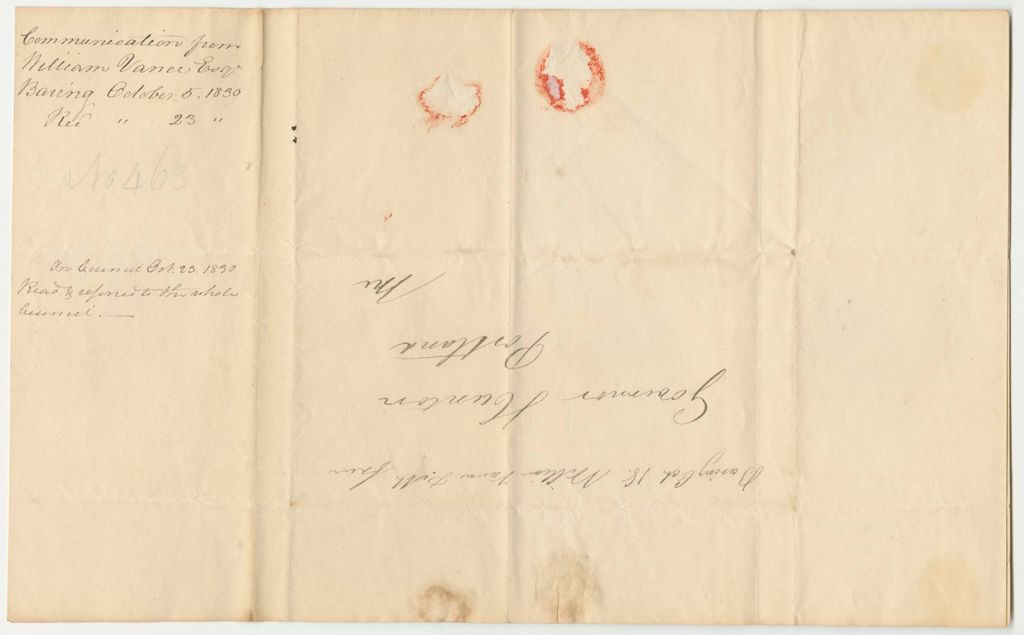 Communication from
William Vance Esqr
Baring October 5. 1830
Recd " 23 "
No 463
In Council Oct. 23. 1830
Read & referred to the whole
Council. —
Baring Oct. 18. William Vance
Governor Hunton
Portland
Me